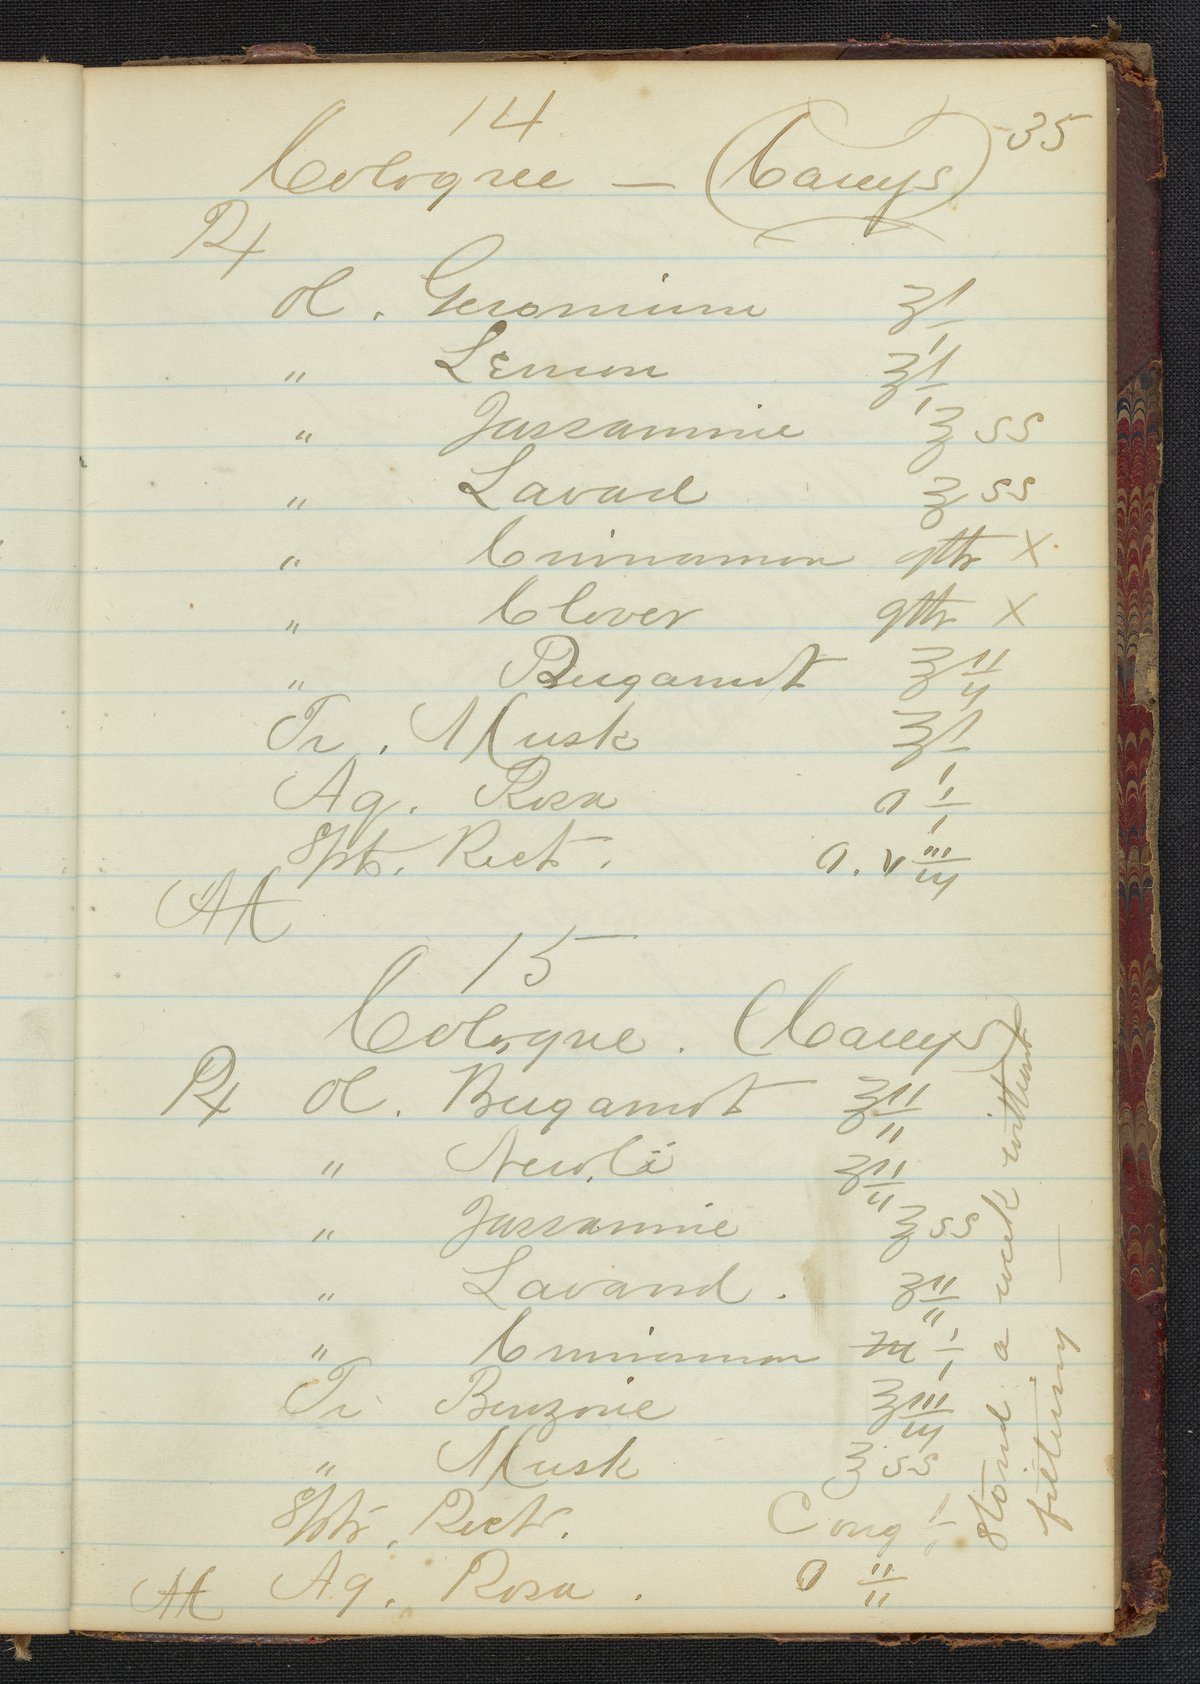 35
14
Cologne — (Caseys)
Rx
Ol. Geronium ʒi
" Lemon ʒi
" Jassamine ʒ ss
" Lavand ʒ ss
" Cinnamon gtts X
" Clover gtts X
" Burgamot ʒii
Tr. Musk ʒi
Aq. Rosa O i
Spts. Rect. O. viii
M
15
Cologne. (Caseys)
Rx Ol. Burgamot ʒii
" Neroli ʒii
" Jassamine ʒ ss
" Lavand. ʒii
" Cinnamon m i
Tr Benzoine ʒiii
" Musk ʒ ss
Spts. Rect. Cong i
M Aq. Rosa. O ii
Stand a week without
filtering —